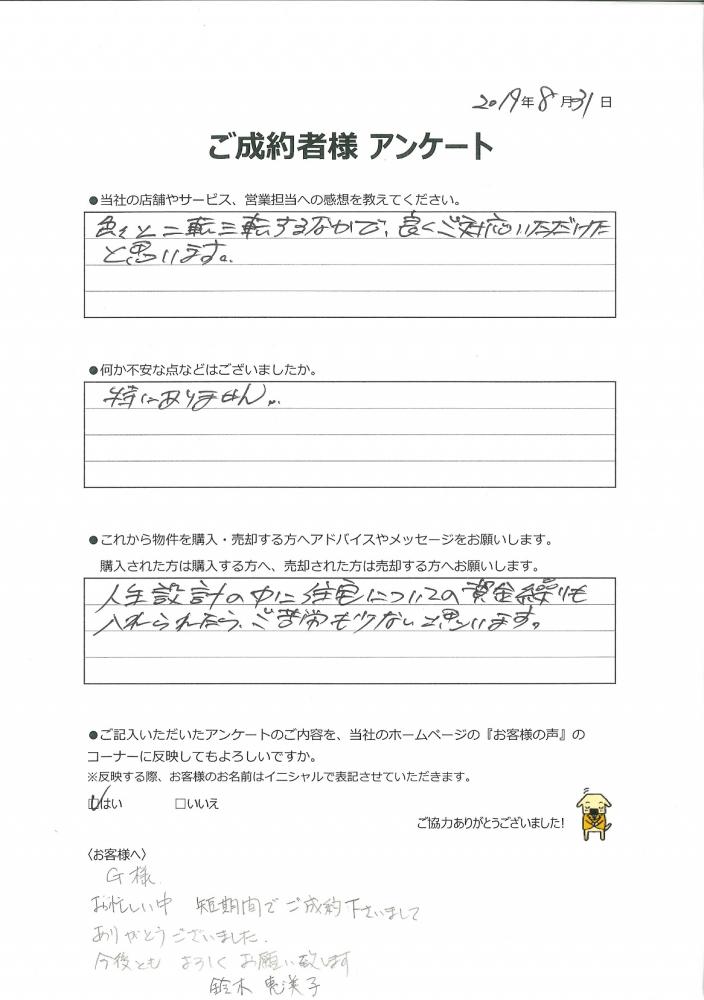 2019年8月31日
ご成約者様 アンケート
●当社の店舗やサービス、営業担当への感想を教えてください。
色々と二転三転するなかで、良くご対応いただけた
と思います。
●何か不安な点などはございましたか。
特にありません。
●これから物件を購入・売却する方へアドバイスやメッセージをお願いします。
購入された方は購入する方へ、売却された方は売却する方へお願いします。
人生設計の中に住宅についての資金繰りも
入れられたら、ご苦労も少ないと思います。
●ご記入いただいたアンケートのご内容を、当社のホームページの『お客様の声』の
コーナーに反映してもよろしいですか。
※反映する際、お客様のお名前はイニシャルで表記させていただきます。
☑はい □いいえ
ご協力ありがとうございました!
〈お客様へ〉
G様
お忙しい中 短期間でご成約下さいまして
ありがとうございました.
今後とも よろしく お願い致します
鈴木 恵美子